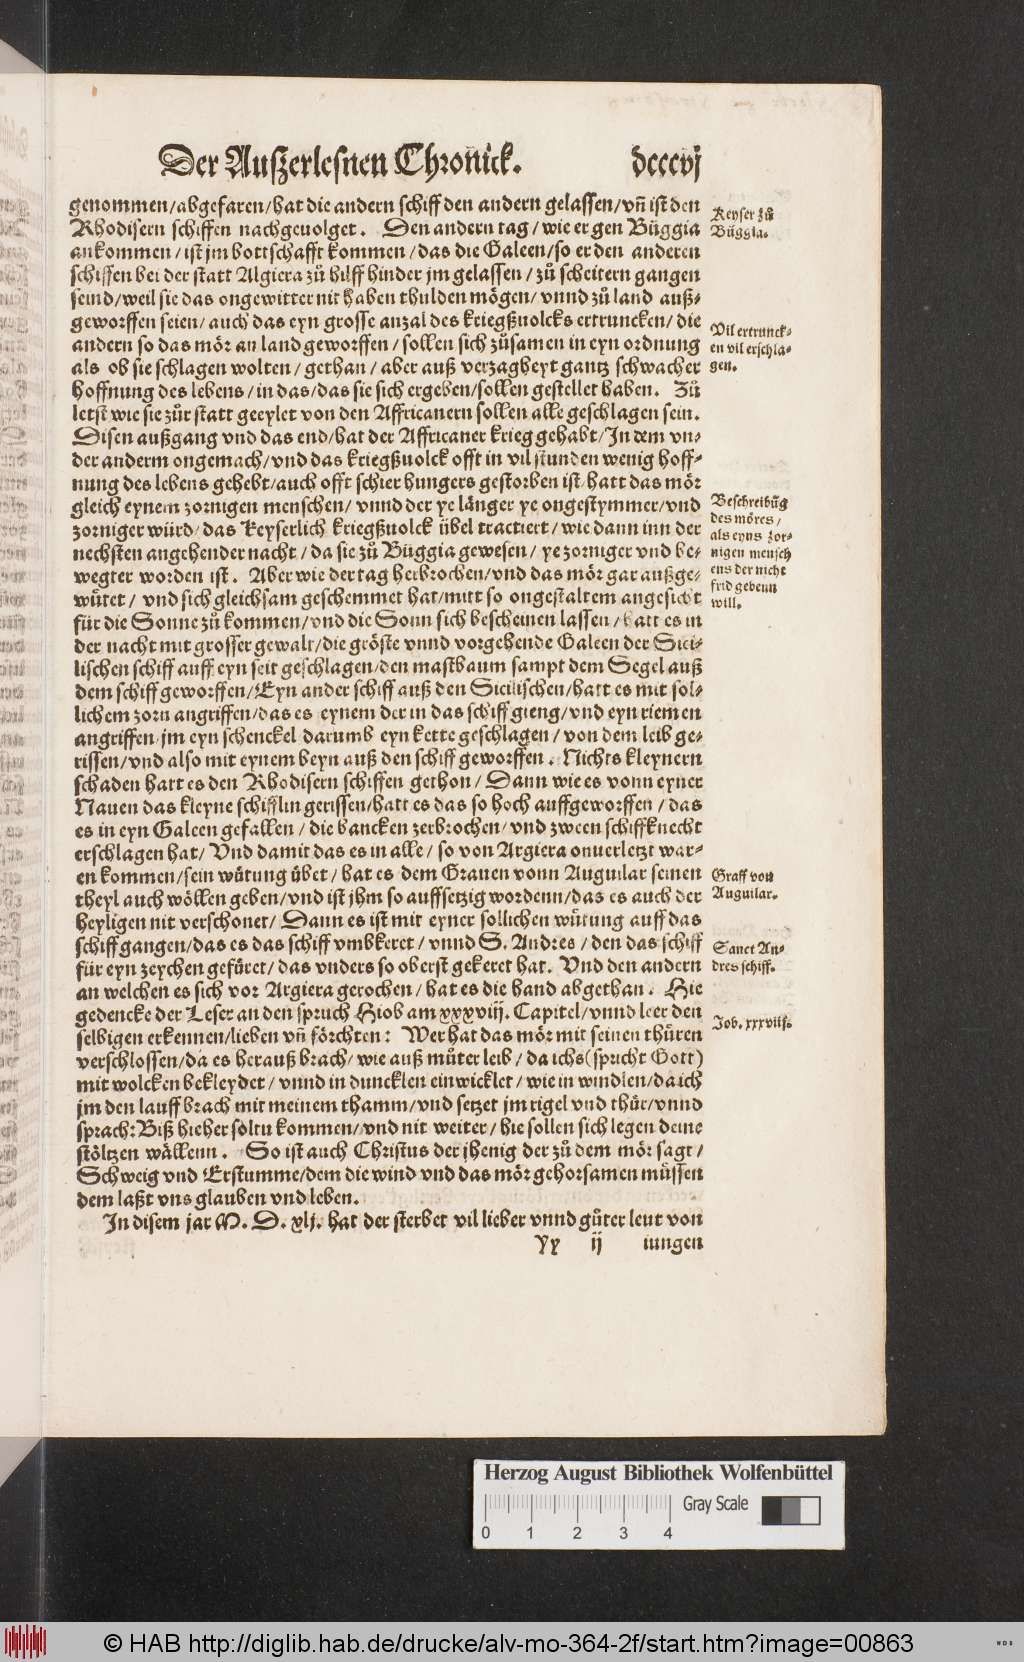 Der Außerlesnen Chronick. dcccvj
genommen/abgefaren/hat die andern schiff den andern gelassen/vñ ist den
Rhodisern schiffen nachgeuolget. Den andern tag/wie er gen Büggia
ankommen/ist jm bottschafft kommen/das die Galeen/so er den anderen
schiffen bei der statt Algiera zů hilff hinder jm gelassen/zů scheitern gangen
seind/weil sie das ongewitter nit haben thulden mögen/vnnd zů land auß-
geworffen seien/auch das eyn grosse anzal des kriegßuolcks ertruncken/die
andern so das mör an land geworffen/sollen sich zůsamen in eyn ordnung
als ob sie schlagen wolten/gethan/aber auß verzagheyt gantz schwacher
hoffnung des lebens/in das/das sie sich ergeben/sollen gestellet haben. Zů
letst wie sie zůr statt geeylet von den Affricanern sollen alle geschlagen sein.
Disen außgang vnd das end/hat der Affricaner krieg gehabt/In dem vn-
der anderm ongemach/vnd das kriegßuolck offt in vil stunden wenig hoff-
nung des lebens gehebt/auch offt schier hungers gestorben ist/hatt das mör
gleich eynem zornigen menschen/vnnd der ye länger ye ongestymmer/vnd
zorniger würd/das Keyserlich kriegßuolck übel tractiert/wie dann inn der
nechsten angehender nacht/da sie zů Büggia gewesen/ye zorniger vnd be-
wegter worden ist. Aber wie der tag herbrochen/vnd das mör gar außge-
wütet/vnd sich gleichsam geschemmet hat/mitt so ongestaltem angesicht
für die Sonne zů kommen/vnd die Sonn sich bescheinen lassen/hatt es in
der nacht mit grosser gewalt/die gröste vnnd vorgehende Galeen der Sici-
lischen schiff auff eyn seit geschlagen/den mastbaum sampt dem Segel auß
dem schiff geworffen/Eyn ander schiff auß den Sicilischen/hatt es mit sol-
lichem zorn angriffen/das es eynem der in das schiff gieng/vnd eyn riemen
angriffen jm eyn schenckel darumb eyn kette geschlagen/von dem leib ge-
rissen/vnd also mit eynem beyn auß den schiff geworffen. Nichts kleynern
schaden hatt es den Rhodisern schiffen gethon/Dann wie es vonn eyner
Nauen das kleyne schifflin gerissen/hatt es das so hoch auffgeworffen/das
es in eyn Galeen gefallen/die bancken zerbrochen/vnd zween schiffknecht
erschlagen hat/Vnd damit das es in alle/so von Argiera onuerletzt war-
en kommen/sein wütung übet/hat es dem Grauen vonn Auguilar seinen
theyl auch wöllen geben/vnd ist jhm so auffsetzig wordenn/das es auch der
heyligen nit verschonet/Dann es ist mit eyner sollichen wütung auff das
schiff gangen/das es das schiff vmbkeret/vnnd S. Andres/den das schiff
für eyn zeychen gefüret/das vnders so oberst gekeret hat. Vnd den andern
an welchen es sich vor Argiera gerochen/hat es die hand abgethan. Hie
gedencke der Leser an den spruch Hiob am xxxviij. Capitel/vnnd leer den
selbigen erkennen/lieben vñ förchten: Wer hat das mör mit seinen thüren
verschlossen/da es herauß brach/wie auß můter leib/da ichs(spricht Gott)
mit wolcken bekleydet/vnnd in duncklen einwicklet/wie in windlen/da ich
jm den lauff brach mit meinem thamm/vnd setzet jm rigel vnd thür/vnnd
sprach:Biß hieher soltu kommen/vnd nit weiter/hie sollen sich legen deine
stöltzen wällenn. So ist auch Christus der jhenig der zů dem mör sagt/
Schweig vnd Erstumme/dem die wind vnd das mör gehorsamen müssen
dem laßt vns glauben vnd leben.
In disem jar M. D. xlj. hat der sterbet vil lieber vnnd gůter leut von
Yy ij iungen
Keyser zů
Büggia.
Vil ertrunck-
en vil erschla-
gen.
Beschreibũg
des möres/
als eyns zor-
nigen mensch
ens der nicht
frid gebenn
will.
Graff von
Auguilar.
Sanct An-
dres schiff.
Job. xxxviij.
Herzog August Bibliothek Wolfenbüttel
Gray Scale
0 1 2 3 4
© HAB http://diglib.hab.de/drucke/alv-mo-364-2f/start.htm?image=00863